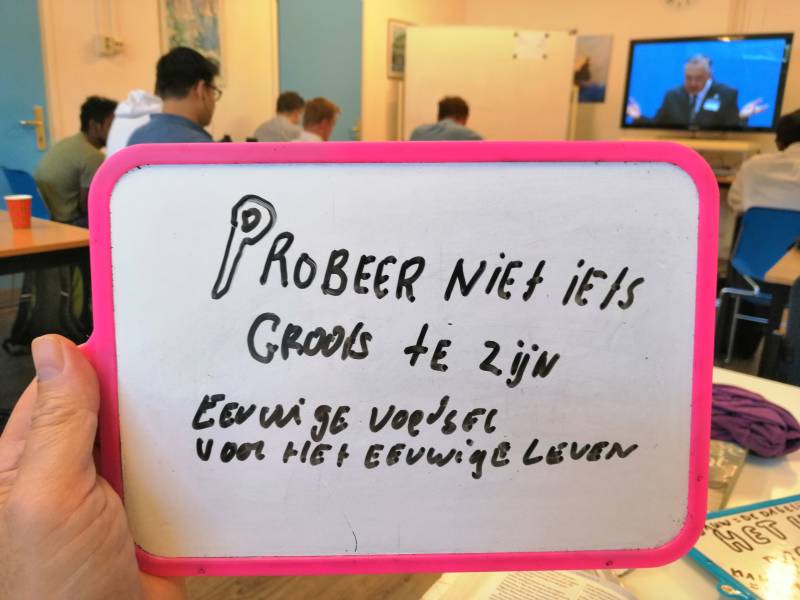 PROBEER NiEt iEts
GROOts tE ZijN
EEUWigE VOEDSEL
VOOR HEt EEUWigE LEVEN
HET